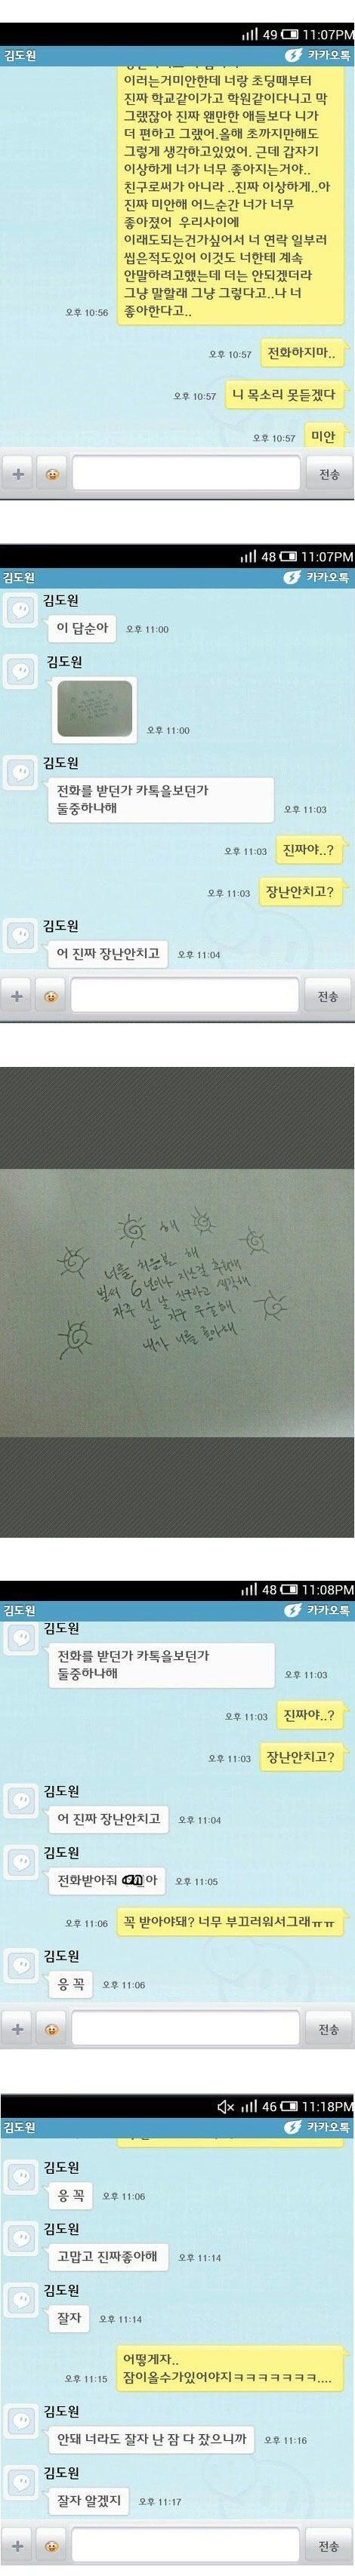 49 11:07PM
김도원 카카오톡
이러는거미안한데 너랑 초딩때부터
진짜 학교같이가고 학원같이다니고 막
그랬잖아 진짜 왠만한 애들보다 니가
더 편하고 그랬어.올해 초까지만해도
그렇게 생각하고있었어. 근데 갑자기
이상하게 너가 너무 좋아지는거야..
친구로써가 아니라 ..진짜 이상하게..아
진짜 미안해 어느순간 너가 너무
좋아졌어 우리사이에
이래도되는건가싶어서 너 연락 일부러
씹은적도있어 이것도 너한테 계속
안말하려고했는데 더는 안되겠더라
그냥 말할래 그냥 그렇다고..나 너
좋아한다고..
오후 10:56
전화하지마..
오후 10:57
니 목소리 못듣겠다
오후 10:57
미안
오후 10:57
전송
48 11:07PM
김도원 카카오톡
김도원
이 답순아
오후 11:00
김도원
오후 11:00
김도원
전화를 받던가 카톡을보던가
둘중하나해
오후 11:03
진짜야..?
오후 11:03
장난안치고?
오후 11:03
김도원
어 진짜 장난안치고
오후 11:04
전송
해
너를 처음본 해
벌써 6년이나 지난걸 축하해
자꾸 넌 날 친구라고 생각해
난 자꾸 우울해
내가 너를 좋아해
48 11:08PM
김도원 카카오톡
김도원
전화를 받던가 카톡을보던가
둘중하나해
오후 11:03
진짜야..?
오후 11:03
장난안치고?
오후 11:03
김도원
어 진짜 장난안치고
오후 11:04
김도원
전화받아줘 아
오후 11:05
꼭 받아야돼? 너무 부끄러워서그래ㅠㅠ
오후 11:06
김도원
응 꼭
오후 11:06
전송
46 11:18PM
김도원 카카오톡
김도원
응 꼭
오후 11:06
김도원
고맙고 진짜좋아해
오후 11:14
김도원
잘자
오후 11:14
어떻게자..
잠이올수가있어야지ㅋㅋㅋㅋㅋㅋㅋ....
오후 11:15
김도원
안돼 너라도 잘자 난 잠 다 잤으니까
오후 11:16
김도원
잘자 알겠지
오후 11:17
전송